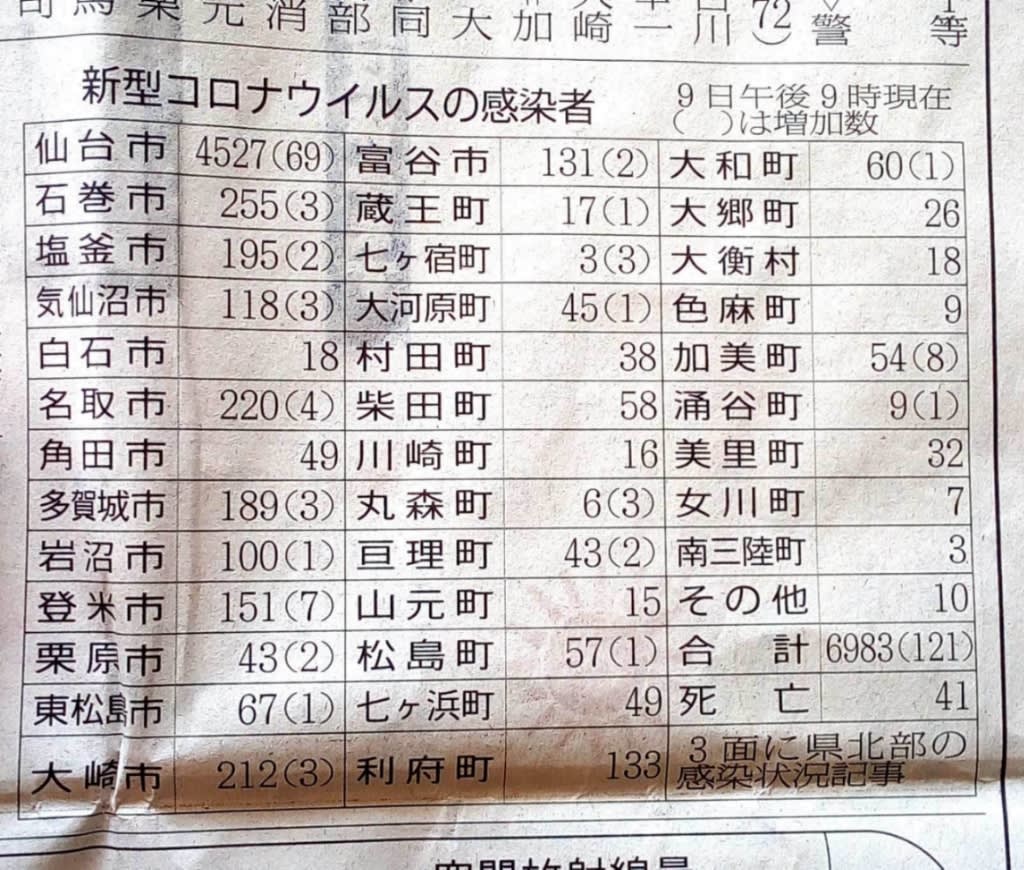 司馬業元消部同大加崎一川72)警等
新型コロナウイルスの感染者
9日午後9時現在
( )は増加数
仙台市 4527(69) 富谷市 131(2) 大和町 60(1)
石巻市 255(3) 蔵王町 17(1) 大郷町 26
塩釜市 195(2) 七ヶ宿町 3(3) 大衡村 18
気仙沼市 118(3) 大河原町 45(1) 色麻町 9
白石市 18 村田町 38 加美町 54(8)
名取市 220(4) 柴田町 58 涌谷町 9(1)
角田市 49 川崎町 16 美里町 32
多賀城市 189(3) 丸森町 6(3) 女川町 7
岩沼市 100(1) 亘理町 43(2) 南三陸町 3
登米市 151(7) 山元町 15 その他 10
栗原市 43(2) 松島町 57(1) 合計 6983(121)
東松島市 67(1) 七ヶ浜町 49 死亡 41
大崎市 212(3) 利府町 133 3面に県北部の
感染状況記事
空間放射線量